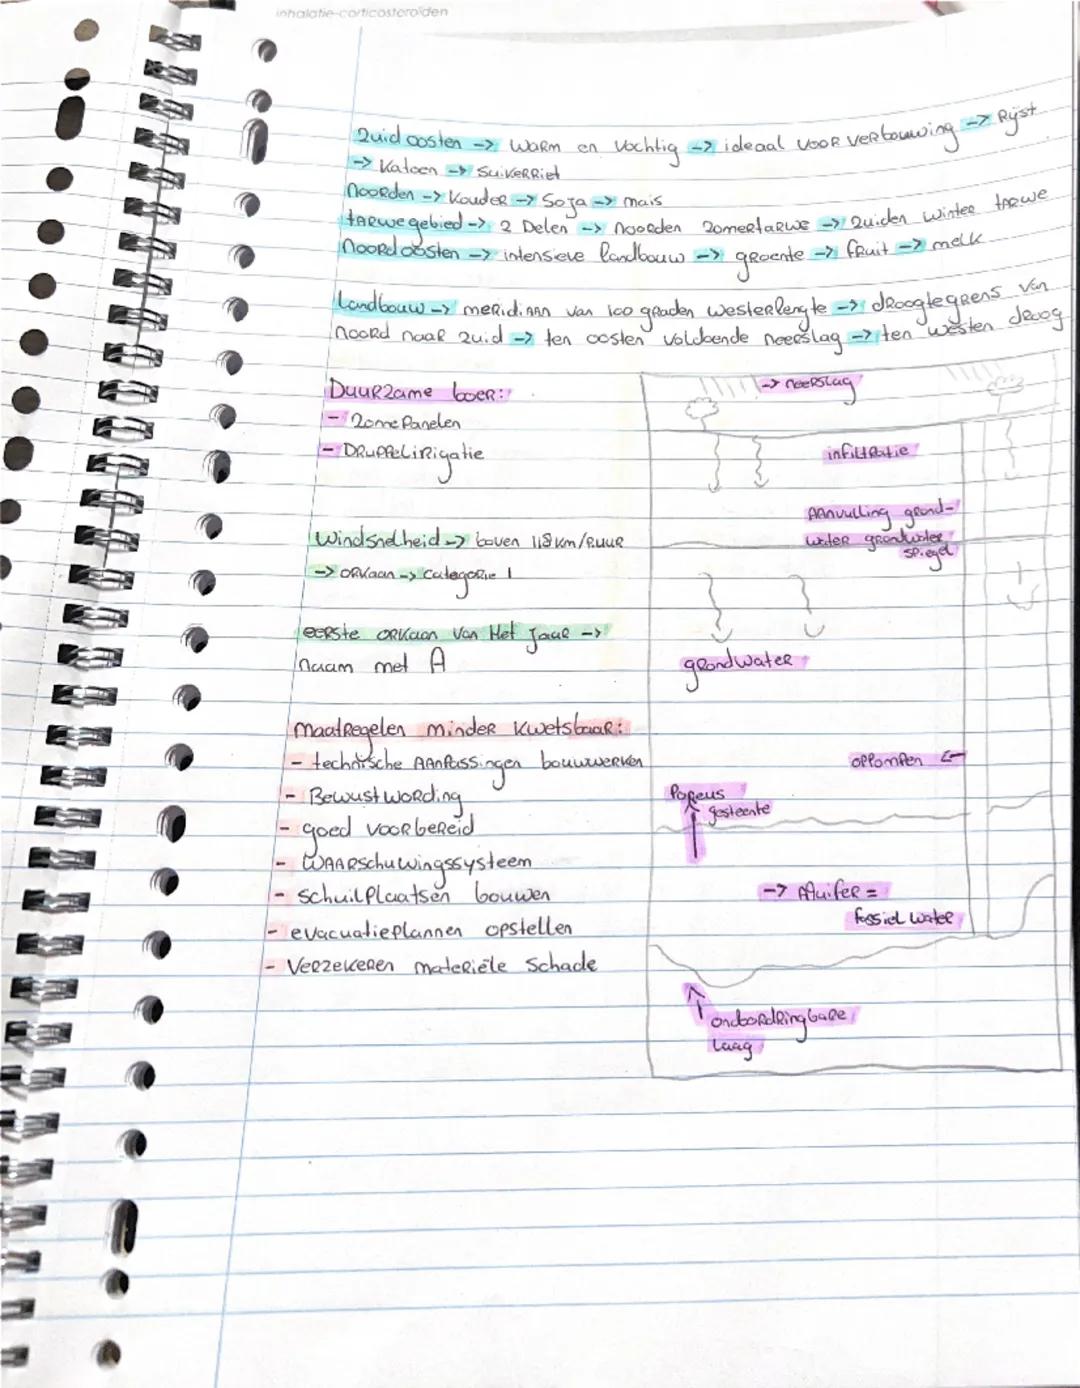 inhalatie-corticosteroïden
Zuid oosten -> warm en vochtig -> ideaal voor verbouwing -> Rijst
-> Katoen -> Suikerriet
Noorden -> Kouder -> Soja -> mais
tarwegebied -> 2 Delen -> Noorden zomertarwe -> Zuiden winter tarwe
Noord oosten -> intensieve landbouw -> groente -> fruit -> melk
Landbouw -> meridiaan van 100 graden westerlengte -> droogtegrens van
noord naar zuid -> ten oosten voldoende neerslag -> ten westen droog
Duurzame boer:
- zonepanelen
- Druppelirigatie
Windsnelheid -> boven 118 km/ruur
-> orkaan -> categorie 1
eerste orkaan van Het jaar ->
naam met A
maatregelen minder kwetsbaar:
- technische aanpassingen bouwwerken
- Bewustwording
- goed voorbereid
- waarschuwingssysteem
- schuilplaatsen bouwen
- evacuatieplannen opstellen
- verzekeren materiële schade
-> neerslag
infiltratie
Aanvulling grond-
water grondwater
spiegel
grondwater
oppompen <-
Poreus
gesteente
-> Aquifer =
fossiel water
ondoordringbare
laag